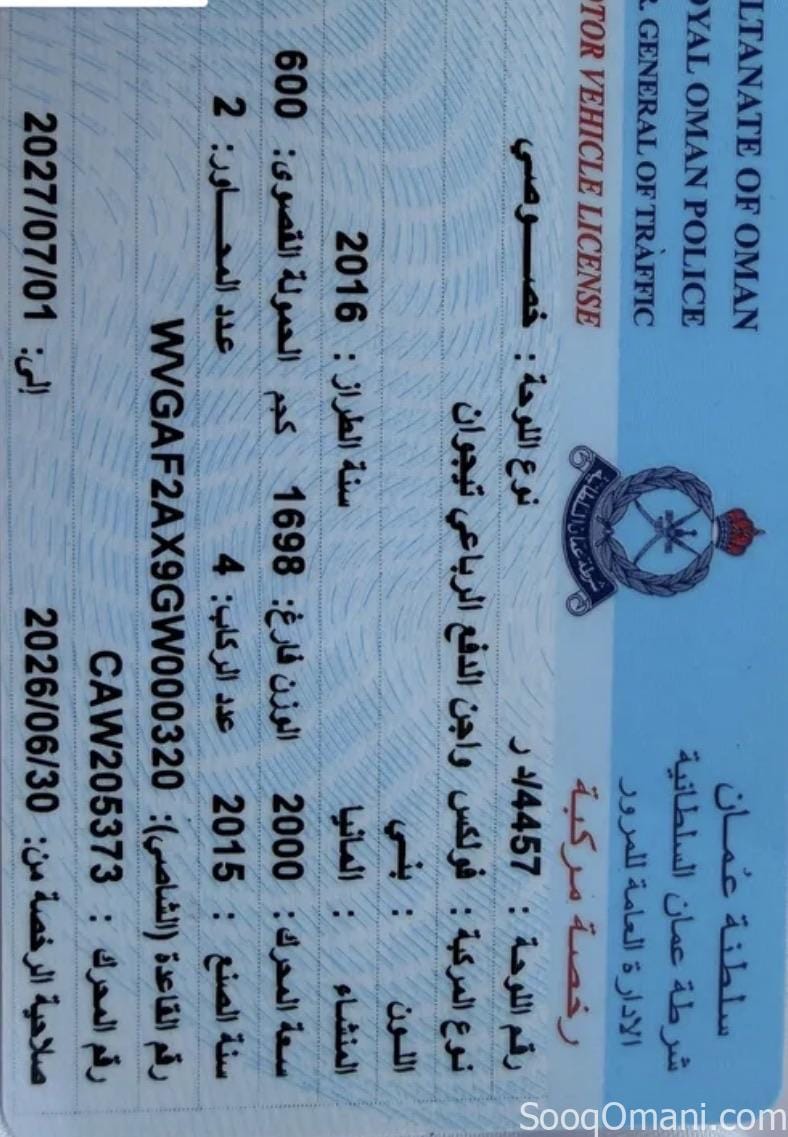 سلطنة عُمان
شرطة عمان السلطانية
الادارة العامة للمرور
رخصة مركبة
LTANATE OF OMAN
OYAL OMAN POLICE
R. GENERAL OF TRAFFIC
OTOR VEHICLE LICENSE
شرطة عمان السلطانية
رقم اللوحة : 4457/د ر نوع اللوحة : خصـــوصي
نوع المركبة : فولكس واجن الدفع الرباعي تيجوان
اللـون : بني
المنشاء : المانيا سنة الطراز : 2016
سعة المحرك: 2000 الوزن فارغ: 1698 كجم الحمولة القصوى: 600
سنة الصنع : 2015 عدد الركاب: 4 عدد المحـــاور: 2
رقم القاعدة (الشاصي): WVGAF2AX9GW000320
رقم المحرك : CAW205373
صلاحية الرخصة من: 2026/06/30 إلى: 2027/07/01
SooqOmani.com